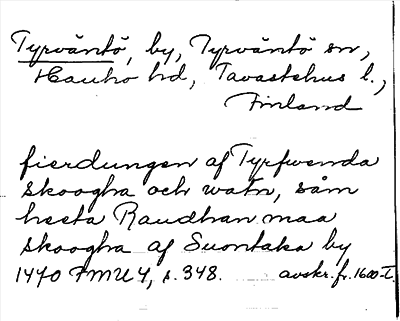 Tyrväntö, by, Tyrväntö sn,
Hauho hd, Tavastehus l.,
Finland
fierdungen af Tyrfwenda
skoogha och watn, såm
heeta Raudhan maa
skoogha af Suontaka by
1470 FMU 4, s. 348. avskr. fr. 1600-t.